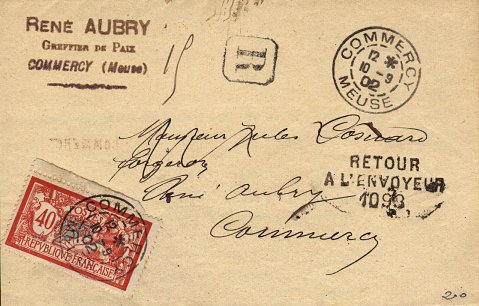 RENÉ AUBRY
GREFFIER DE PAIX
COMMERCY (Meuse)
15
R
COMMERCY
12 *
10 - 9
02
MEUSE
Monsieur Jules
forgeron
COMMERCY
René Aubry
Commercy
RETOUR
A L'ENVOYEUR
1098
COMMERCY
12 *
10 9
02
40
REPUBLIQUE FRANÇAISE
200